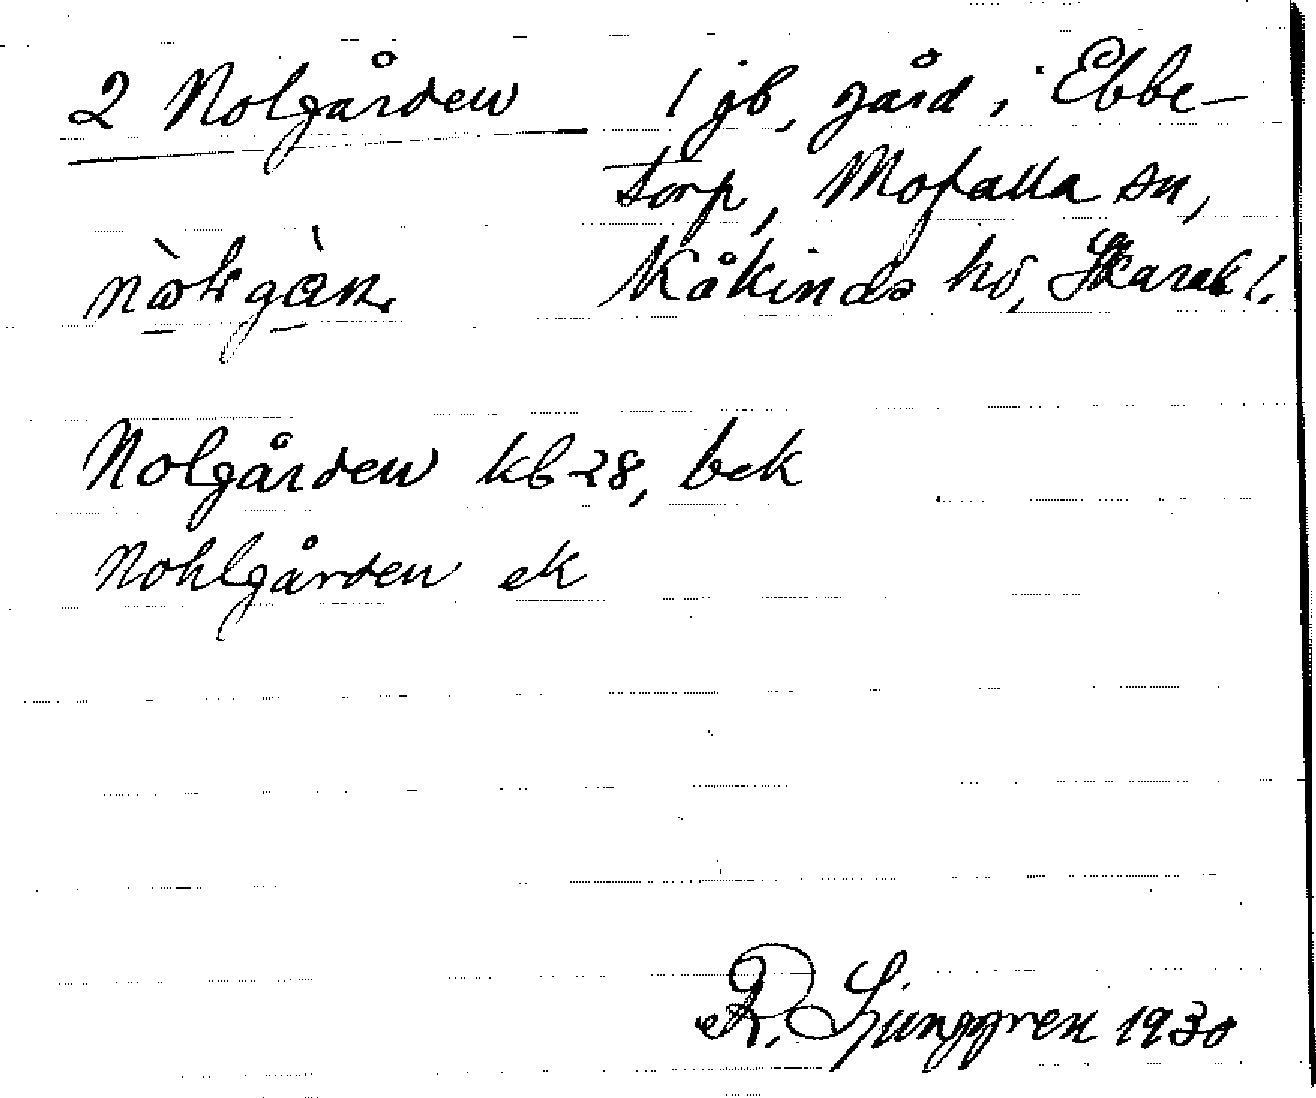 2 Nolgården 1 jb, gård i Ebbe-
torp, Mofalla sn,
Kåkinds hd, Skarab l.
Nolgården kb 28, bek
Nohlgården ek
R. Ljunggren 1930